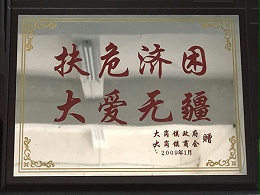 扶危济困
大爱无疆
大岗镇政府
大岗镇商会
赠
2009年1月